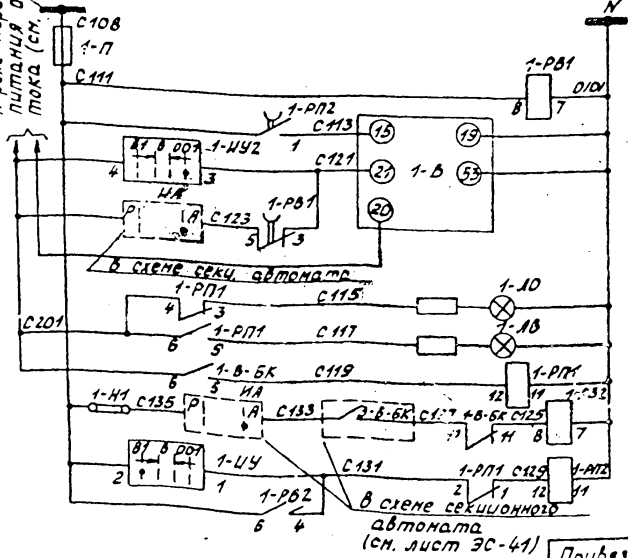 питания о
тока (см.
С108
1-П
N
С111
1-РВ1
8 7
0101
1-РП2
1
С113
15 19
В1 В 001
1-ИУ2
4 3
С121
21 1-В 53
НА
20
Р А
С123
1-РВ1
5 3
В схеме секц. автомата
1-РП1
4 3
С115
1-ЛО
С201
1-РП1
6 5
С117
1-ЛВ
1-В-БК
6 5
С119
1-РП1
12 11
1-Н1
С135
ИА
Р А
С133
2-В-БК
1-В-БК
11
С125
8 7
В1 В 001
1-ИУ
2 1
С131
1-РП1
2 1
С129
12 11
1-РП2
1-РВ2
6 4
В схеме секционного
автомата
(см. лист ЭС-41)
Привяз